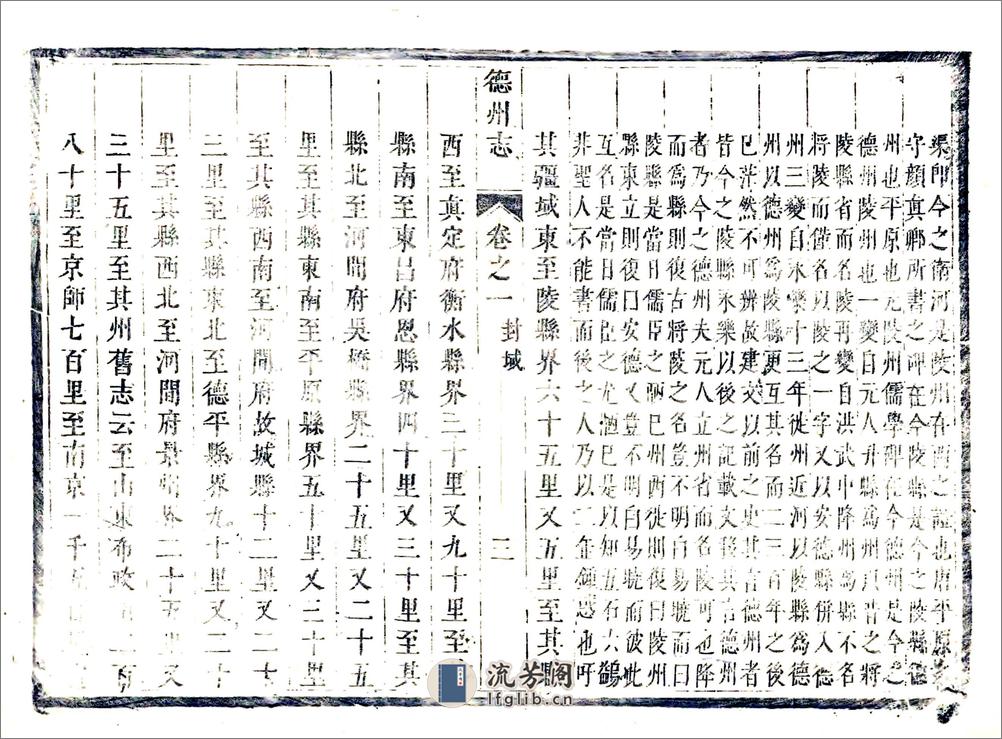 渠卽今之衛河是陵州在西之證也唐平原
守顔真卿所書之碑在今陵縣是今之陵縣德
州也平原也元陵州儒學碑在今德州是今之
德州陵州也一變自元人升縣爲州以昔之將
陵縣省而名陵再變自洪武中降州爲縣不名
將陵而僣名以陵之一字又以安德縣併入德
州三變自永樂十三年徙州近河以陵縣爲德
州以德州爲陵縣更互其名而二三百年之後
巳茫然不可辨故建文以前之史其言德州者
皆今之陵縣永樂以後之記載文移其言德州
者乃今之德州夫元人立州省而名陵可也降
而爲縣則復古將陵之名豈不明白易曉而曰
陵縣是當日儒臣之陋巳州西徙則復曰陵州
縣東立則復曰安德又豈不明白易曉而彼此
互名是當日儒臣之尤陋巳是以知五石六鷁
非聖人不能書而後之人乃以二金鍾惑也吁
其疆域東至陵縣界六十五里又五里至其縣
德州志 卷之一 封域 二
西至真定府衡水縣界三十里又九十里至
縣南至東昌府恩縣界四十里又三十里至其
縣北至河間府吳橋縣界二十五里又二十五
里至其縣東南至平原縣界五十里又三十里
至其縣西南至河間府故城縣十二里又二十
三里至其縣東北至德平縣界九十里又二十
里至其縣西北至河間府景州界二十五里又
三十五里至其州舊志云至山東布政司二百
八十里至京師七百里至南京一千五
流芳阁
lfglib.cn